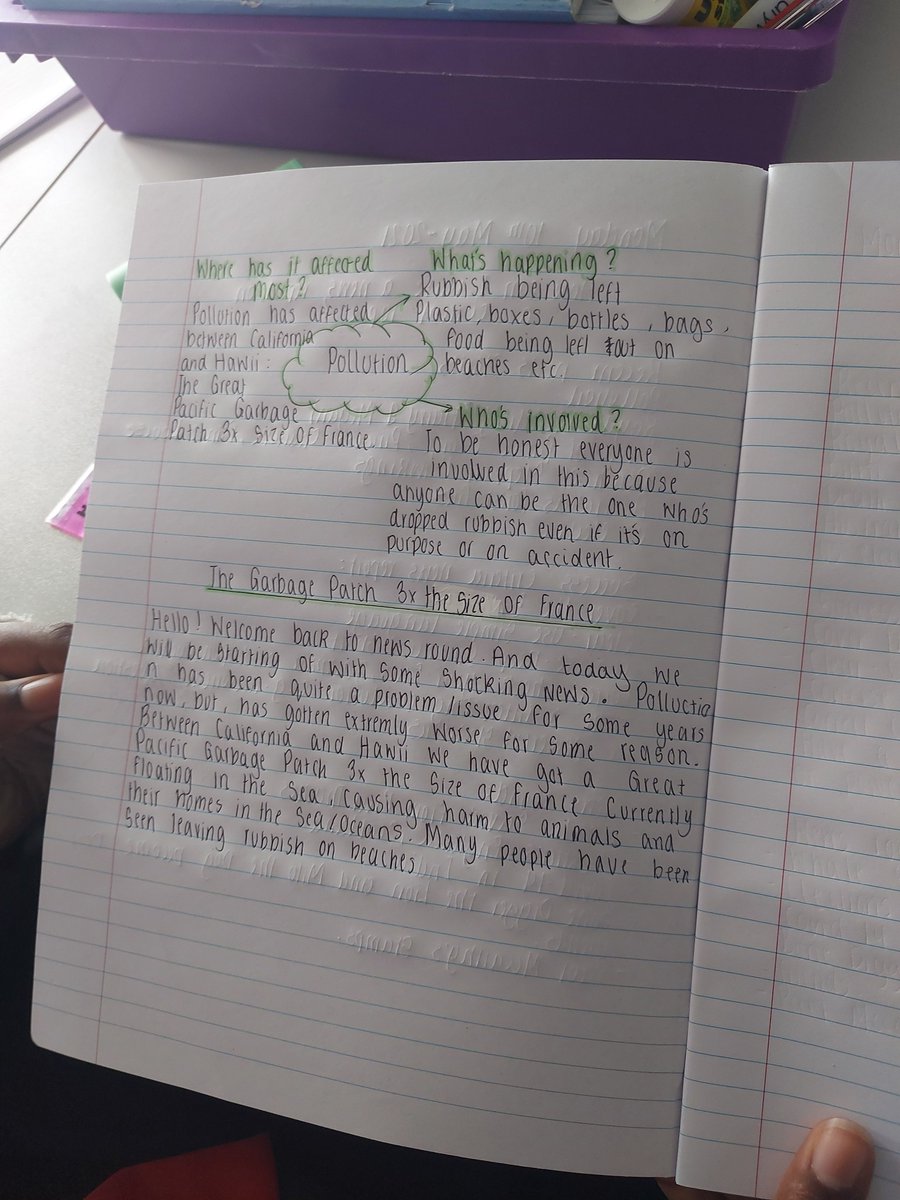 Where has it affected
most?
Pollution has affected
between California
and Hawii :
The Great
Pacific Garbage
Patch 3x Size of France.
Pollution
What's happening ?
Rubbish being left
Plastic, boxes, bottles , bags ,
food being left out on
beaches etc.
Who's involved ?
To be honest everyone is
involved in this because
anyone can be the one who's
dropped rubbish even if it's on
purpose or on accident.
The Garbage Patch 3x the Size of France
Hello! Welcome back to news round. And today we
will be starting of with some shocking news. Pollutio
n has been quite a problem/issue for some years
now, but, has gotten extremly worse for some reason.
Between California and Hawii we have got a Great
Pacific Garbage Patch 3x the Size of France Currently
floating in the sea, causing harm to animals and
their homes in the sea/oceans. Many people have been
seen leaving rubbish on beaches